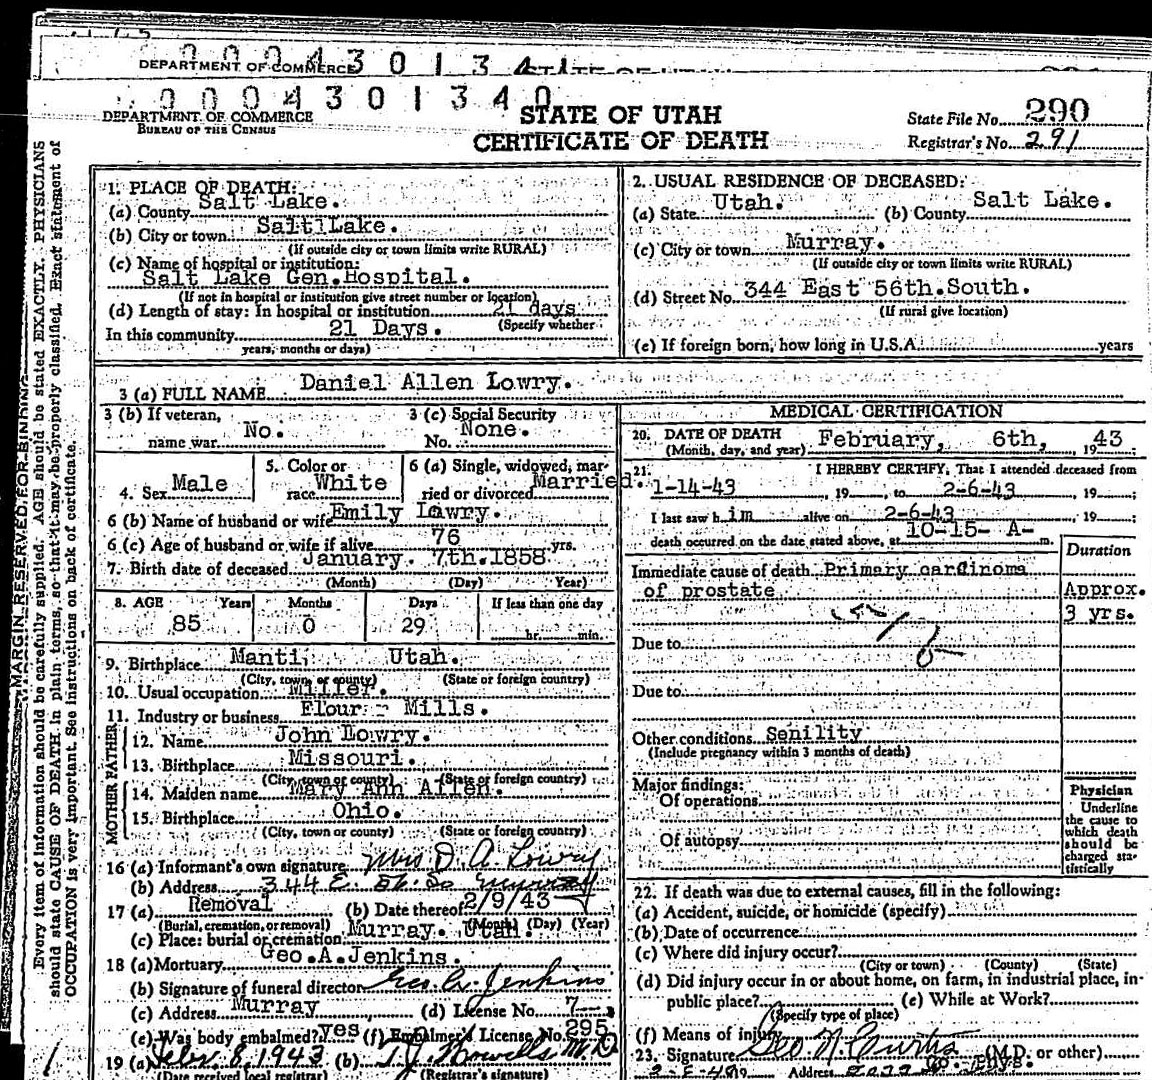 DEPARTMENT OF COMMERCE
0 0 0 4 3 0 1 3 4 0
DEPARTMENT OF COMMERCE
BUREAU OF THE CENSUS
STATE OF UTAH
CERTIFICATE OF DEATH
State File No. 290
Registrar's No. 291
MARGIN RESERVED FOR BINDING
Every item of information should be carefully supplied. AGE should be stated EXACTLY. PHYSICIANS
should state CAUSE OF DEATH in plain terms, so that it may be properly classified. Exact statement of
OCCUPATION is very important. See instructions on back of certificate.
1. PLACE OF DEATH:
(a) County Salt Lake.
(b) City or town Salt Lake.
(If outside city or town limits write RURAL)
(c) Name of hospital or institution:
Salt Lake Gen.Hospital.
(If not in hospital or institution give street number or location)
(d) Length of stay: In hospital or institution 21 days
(Specify whether
In this community 21 Days.
years, months or days)
2. USUAL RESIDENCE OF DECEASED:
(a) State Utah. (b) County Salt Lake.
(c) City or town Murray.
(If outside city or town limits write RURAL)
(d) Street No. 344 East 56th.South.
(If rural give location)
(e) If foreign born, how long in U.S.A. years
3 (a) FULL NAME Daniel Allen Lowry.
3 (b) If veteran, name war No.
3 (c) Social Security No. None.
4. Sex Male
5. Color or race White
6 (a) Single, widowed, married or divorced Married.
6 (b) Name of husband or wife Emily Lowry.
6 (c) Age of husband or wife if alive 76 yrs.
7. Birth date of deceased January. 7th.1858
(Month) (Day) (Year)
8. AGE Years Months Days If less than one day
85 0 29 hr. min.
9. Birthplace Manti, Utah.
(City, town, or county) (State or foreign country)
10. Usual occupation Miller.
11. Industry or business Flour - Mills.
FATHER
12. Name John Lowry.
13. Birthplace Missouri.
(City, town or county) (State or foreign country)
MOTHER
14. Maiden name Mary Ann Allen.
15. Birthplace Ohio.
(City, town or county) (State or foreign country)
16 (a) Informant's own signature Mrs D. A. Lowry
(b) Address 344 E. 56. So Murray
17 (a) Removal (b) Date thereof 2/9/43
(Burial, cremation, or removal) (Month) (Day) (Year)
(c) Place: burial or cremation Murray. Utah.
18 (a) Mortuary Geo.A.Jenkins.
(b) Signature of funeral director Geo. A. Jenkins
(c) Address Murray (d) License No. 7
(e) Was body embalmed? yes (f) Embalmer's License No. 295
19 (a) Febr. 8, 1943 (b) T.J. Howells M.D.
(Date received local registrar) (Registrar's signature)
MEDICAL CERTIFICATION
20. DATE OF DEATH February, 6th, 1943
(Month, day, and year)
21. I HEREBY CERTIFY, That I attended deceased from
1-14-43, 19 , to 2-6-43, 19 ;
I last saw h im alive on 2-6-43, 19 ;
death occurred on the date stated above, at 10-15- A- m.
Duration
Immediate cause of death Primary carcinoma
of prostate
Approx.
3 yrs.
Due to
Due to
Other conditions Senility
(Include pregnancy within 3 months of death)
Major findings:
Of operations
Of autopsy
Physician
Underline
the cause to
which death
should be
charged sta-
tistically
22. If death was due to external causes, fill in the following:
(a) Accident, suicide, or homicide (specify)
(b) Date of occurrence
(c) Where did injury occur?
(City or town) (County) (State)
(d) Did injury occur in or about home, on farm, in industrial place, in
public place? (e) While at Work?
(Specify type of place)
(f) Means of injury
23. Signature Geo N. Curtis (M.D. or other)
Address